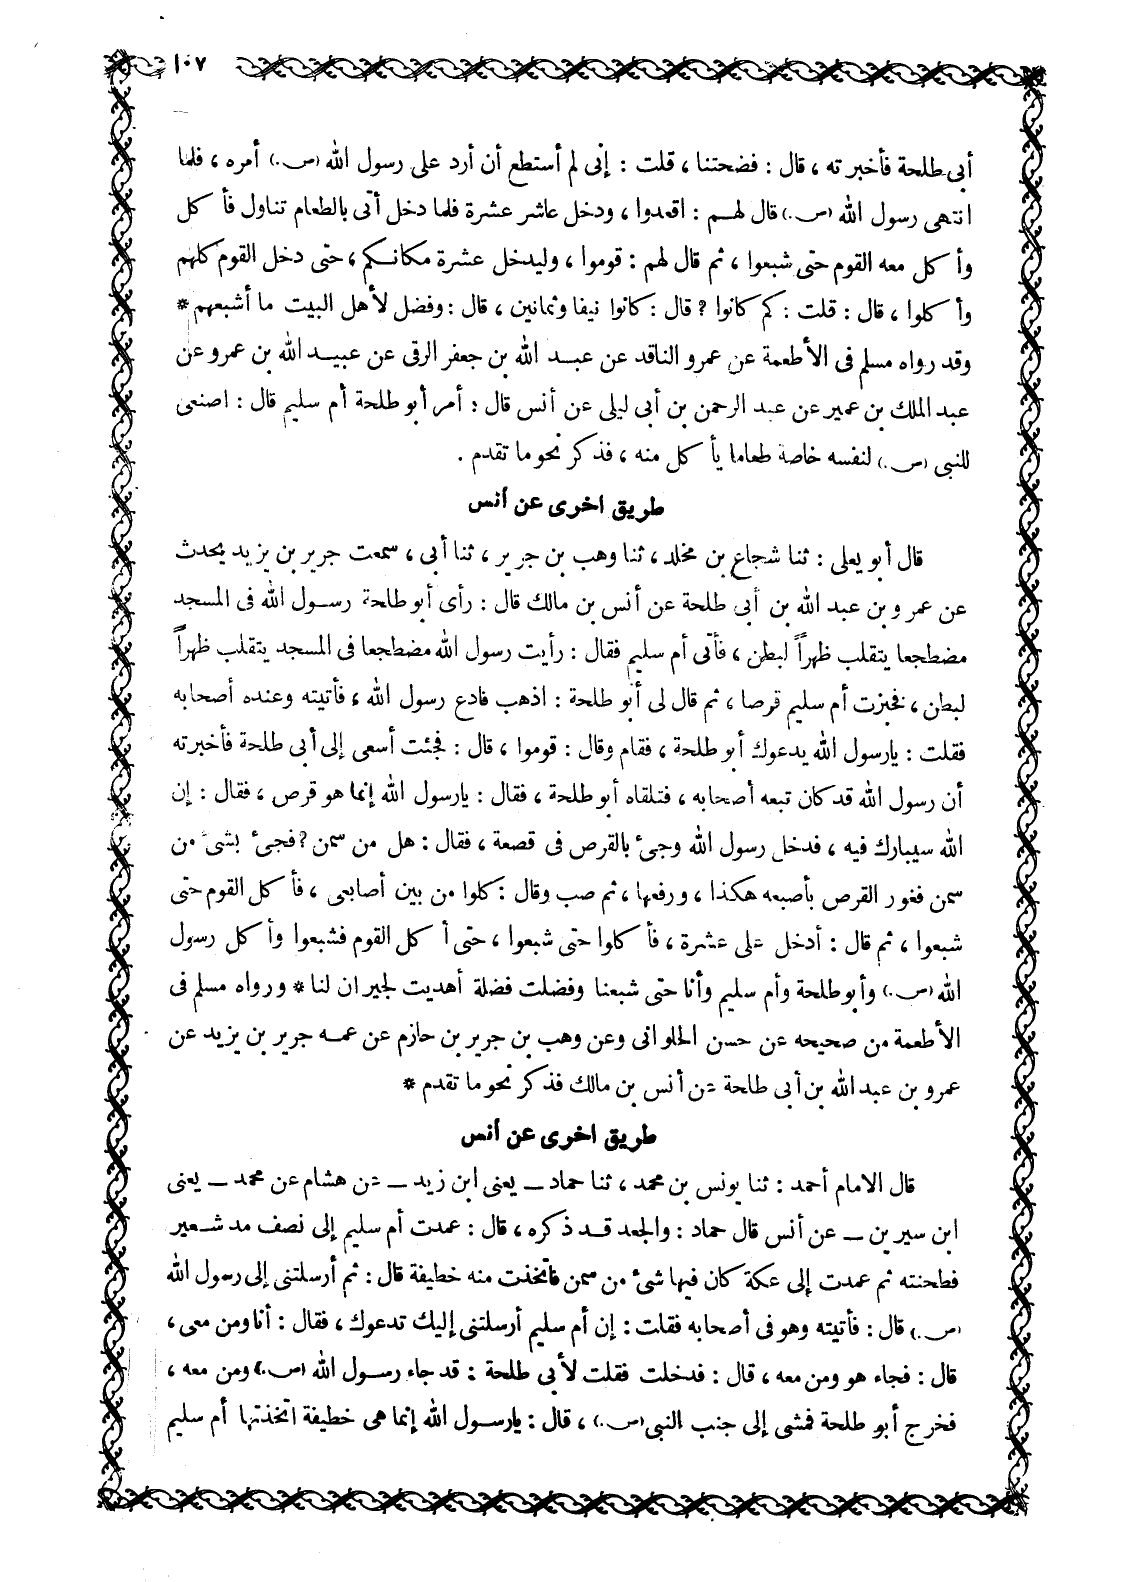 ١٠٧
أبى طلحة فأخبرته ، قال : فضحتنا ، قلت : إنى لم أستطع أن أرد على رسول الله (ص.) أمره ، فلما
انتهى رسول الله (ص.) قال لهم : اقعدوا ، ودخل عاشر عشرة فلما دخل أتى بالطعام تناول فأكل
وأكل معه القوم حتى شبعوا ، ثم قال لهم : قوموا ، وليدخل عشرة مكانكم ، حتى دخل القوم كلهم
وأكلوا ، قال : قلت : كم كانوا ? قال : كانوا نيفا وثمانين ، قال : وفضل لأهل البيت ما أشبعهم *
وقد رواه مسلم فى الأطعمة عن عمرو الناقد عن عبد الله بن جعفر الرقى عن عبيد الله بن عمرو عن
عبد الملك بن عمير عن عبد الرحمن بن أبى ليلى عن أنس قال : أمر أبو طلحة أم سليم قال : اصنعى
للنبى (ص.) لنفسه خاصة طعاما يأكل منه ، فذكر نحو ما تقدم .
طريق اخرى عن أنس
قال أبو يعلى : ثنا شجاع بن مخلد ، ثنا وهب بن جرير ، ثنا أبى ، سمعت جرير بن يزيد يحدث
عن عمرو بن عبد الله بن أبى طلحة عن أنس بن مالك قال : رأى أبو طلحة رسول الله فى المسجد
مضطجعا يتقلب ظهراً لبطن ، فأتى أم سليم فقال : رأيت رسول الله مضطجعا فى المسجد يتقلب ظهراً
لبطن ، فخبزت أم سليم قرصا ، ثم قال لى أبو طلحة : اذهب فادع رسول الله ، فأتيته وعنده أصحابه
فقلت : يارسول الله يدعوك أبو طلحة ، فقام وقال : قوموا ، قال : فجئت أسعى إلى أبى طلحة فأخبرته
أن رسول الله قد كان تبعه أصحابه ، فتلقاه أبو طلحة ، فقال : يارسول الله إنما هو قرص ، فقال : إن
الله سيبارك فيه ، فدخل رسول الله وجىء بالقرص فى قصعة ، فقال : هل من سمن ? فجىء بشىء من
سمن فغور القرص بأصبعه هكذا ، ورفعها ، ثم صب وقال : كلوا من بين أصابعى ، فأكل القوم حتى
شبعوا ، ثم قال : أدخل على عشرة ، فأكلوا حتى شبعوا ، حتى أكل القوم فشبعوا وأكل رسول
الله (ص.) وأبو طلحة وأم سليم وأنا حتى شبعنا وفضلت فضلة أهديت لجيران لنا * ورواه مسلم فى
الأطعمة من صحيحه عن حسن الحلوانى وعن وهب بن جرير بن حازم عن عمه جرير بن يزيد عن
عمرو بن عبد الله بن أبى طلحة عن أنس بن مالك فذكر نحو ما تقدم *
طريق اخرى عن أنس
قال الامام أحمد : ثنا يونس بن محمد ، ثنا حماد ــ يعنى ابن زيد ــ عن هشام عن محمد ــ يعنى
ابن سيرين ــ عن أنس قال حماد : والجعد قد ذكره ، قال : عمدت أم سليم إلى نصف مد شعير
فطحنته ثم عمدت إلى عكة كان فيها شىء من سمن فاتخذت منه خطيفة قال : ثم أرسلتنى إلى رسول الله
(ص.) قال : فأتيته وهو فى أصحابه فقلت : إن أم سليم أرسلتنى إليك تدعوك ، فقال : أنا ومن معى ،
قال : فجاء هو ومن معه ، قال : فدخلت فقلت لأبى طلحة : قد جاء رسول الله (ص.) ومن معه ،
فخرج أبو طلحة فمشى إلى جنب النبى (ص.) ، قال : يارسول الله إنما هى خطيفة اتخذتها أم سليم